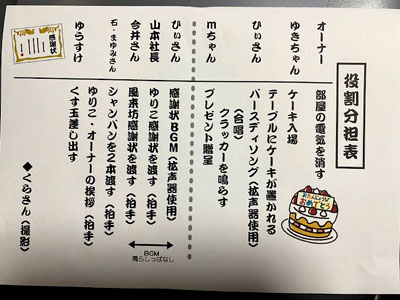 役割分担表
オーナー 部屋の電気を消す
ゆきちゃん ケーキ入場
テーブルにケーキが置かれる
ひぃさん バースディソング(拡声器使用)
(合唱)
クラッカーを鳴らす
mちゃん プレゼント贈呈
ひぃさん 感謝状BGM(拡声器使用)
山本社長 ゆりこ感謝状を渡す(拍手)
今井さん 風来坊感謝状を渡す(拍手)
石・まゆみさん シャンパンを2本渡す(拍手)
ゆりこ・オーナーの挨拶(拍手)
ゆうすけ くす玉差し出す
BGM
鳴らしっぱなし
◆くらさん(撮影)
感謝状
おめでとう